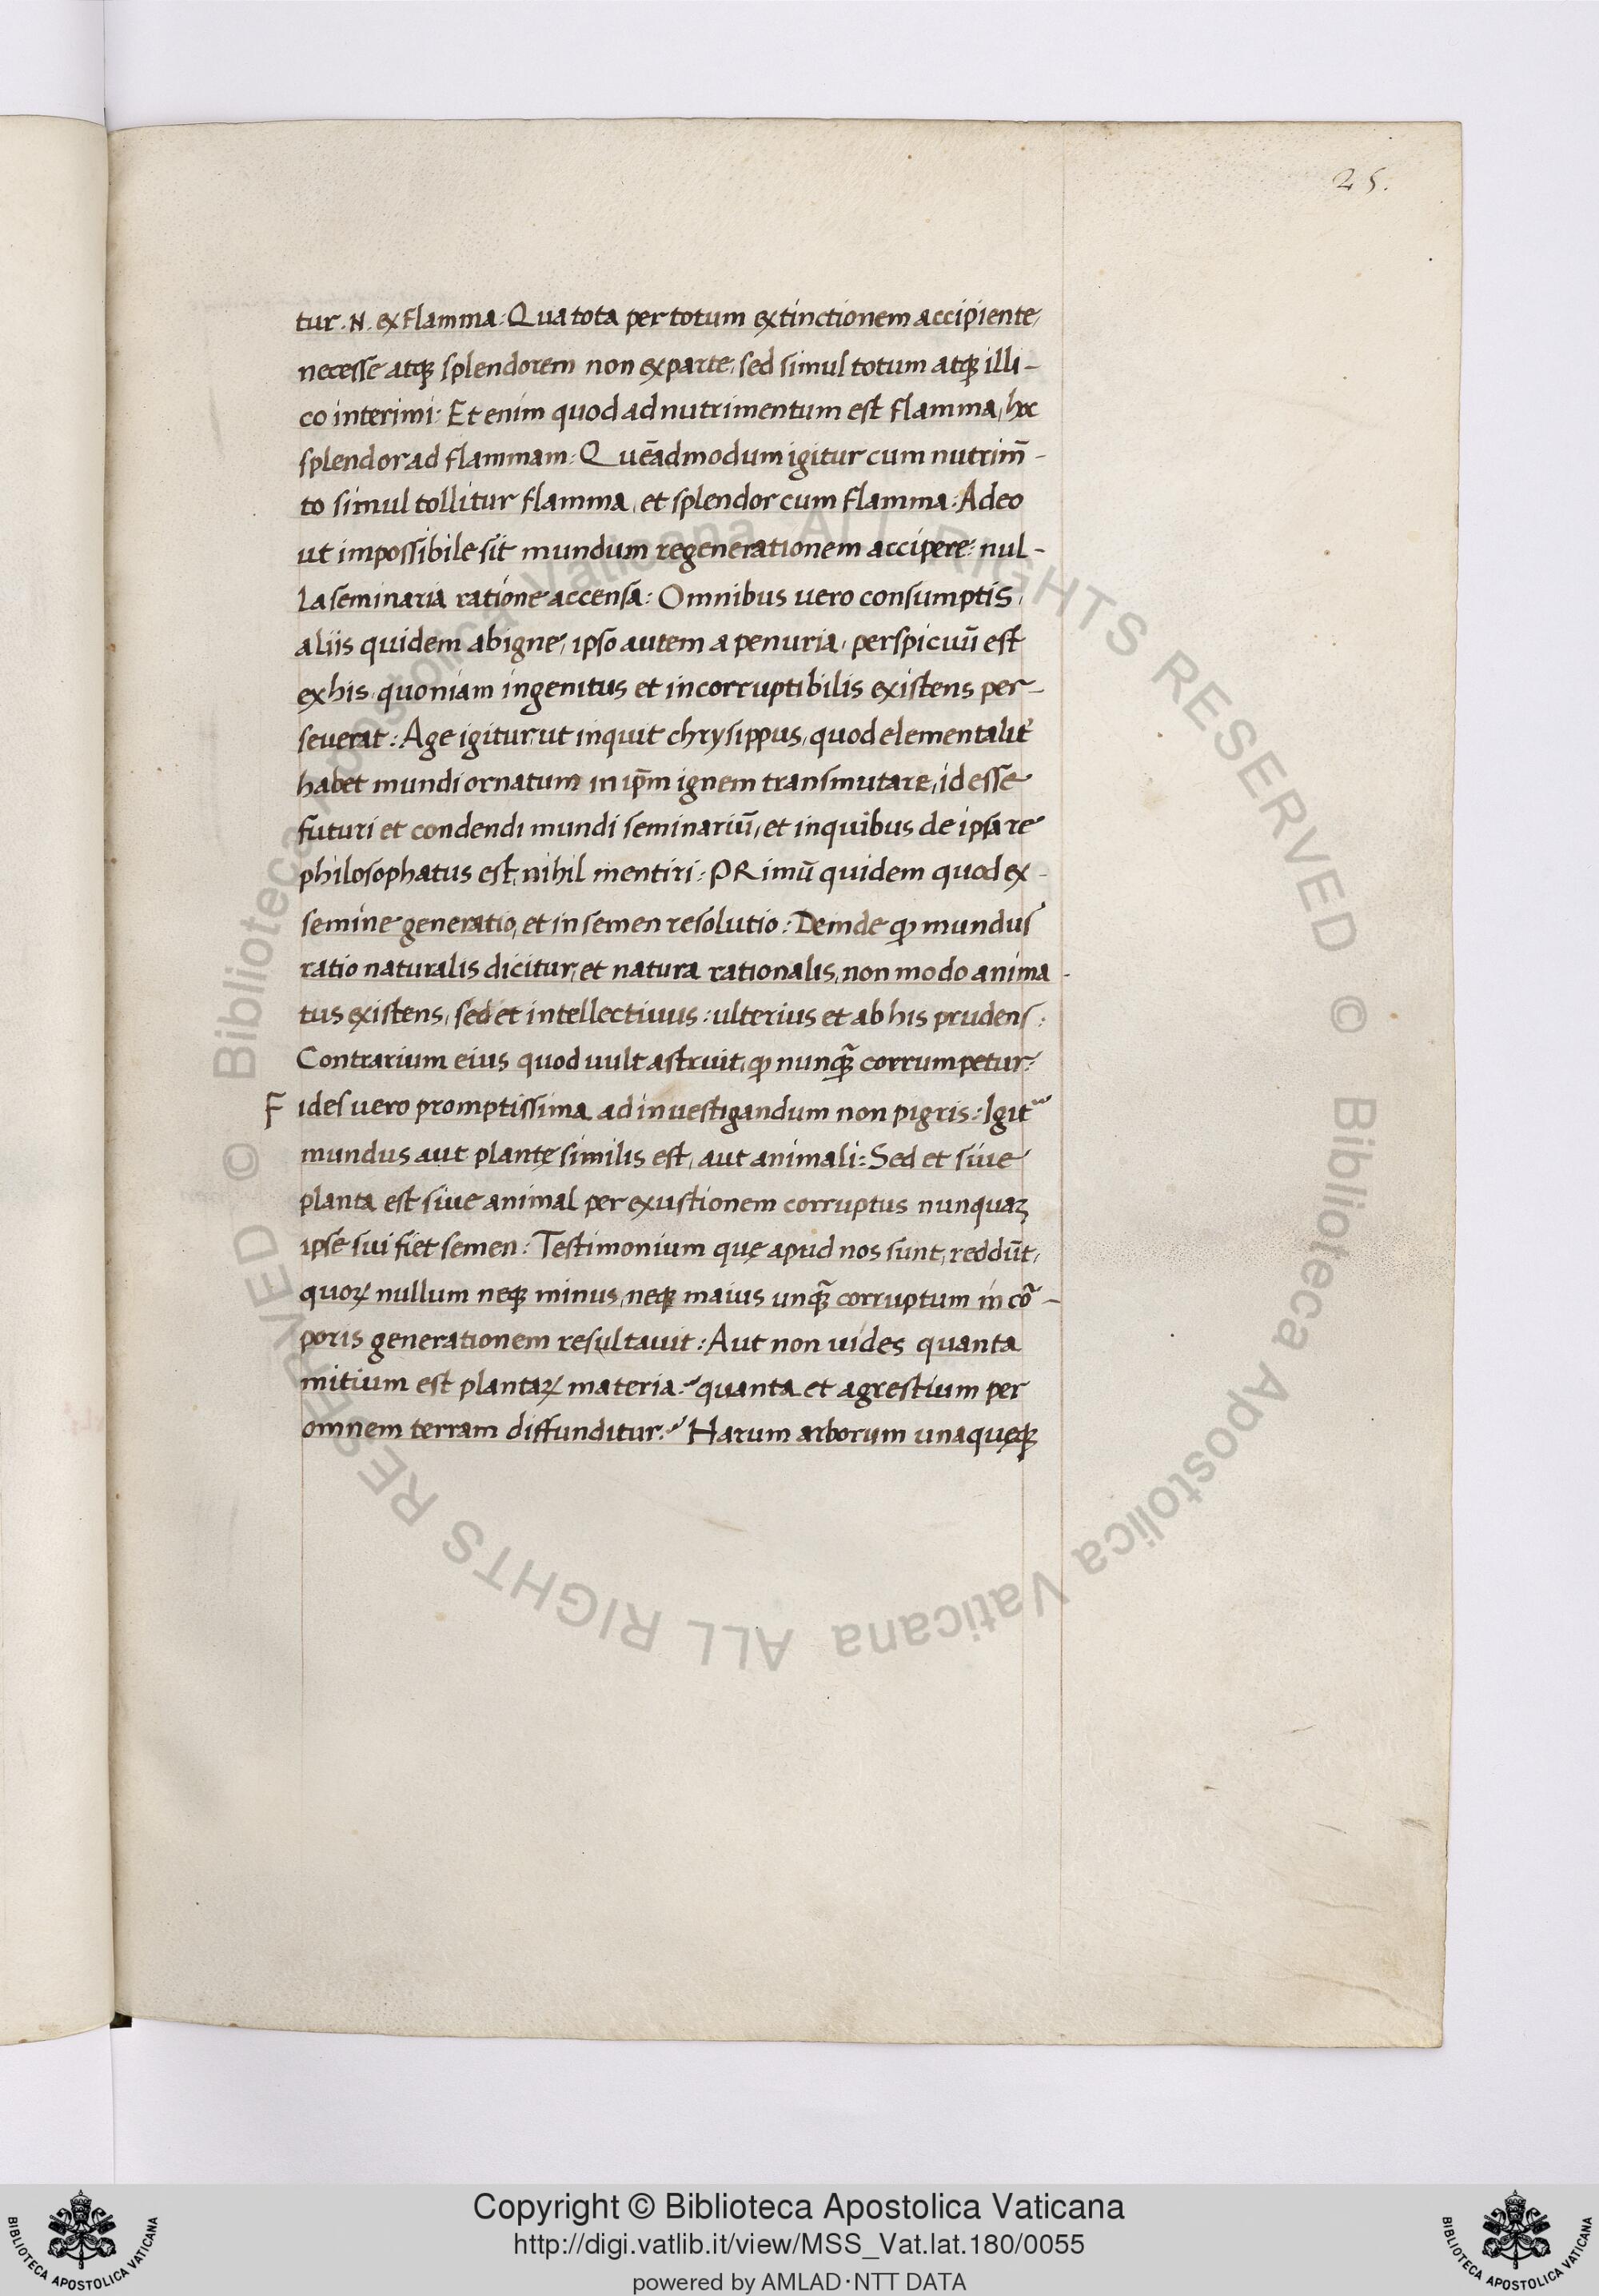 25.
tur .N. ex flamma. Qua tota per totum extinctionem accipiente,
necesse atq; splendorem non ex parte, sed simul totum atq; illi-
co interimi. Et enim quod ad nutrimentum est flamma, hoc
splendor ad flammam. Quēadmodum igitur cum nutrim̄-
to simul tollitur flamma, et splendor cum flamma: Adeo
ut impossibile sit mundum regenerationem accipere: nul-
la seminaria ratione accensa: Omnibus vero consumptis,
aliis quidem ab igne, ipso autem a penuria, perspicuū est
ex his quoniam ingenitus et incorruptibilis existens per-
severat: Age igitur ut inquit chrysippus, quod elementalit̓
habet mundi ornatum in ip̄m ignem transmutare, id esse
futuri et condendi mundi seminariū, et in quibus de ipsa re
philosophatus est, nihil mentiri: PRimū quidem quod ex-
semine generatio, et in semen resolutio: Deinde ꝙ mundus
ratio naturalis dicitur, et natura rationalis, non modo anima-
tus existens, sed et intellectivus: ulterius et ab his prudens:
Contrarium eius quod vult astruit, ꝙ nunq̃ corrumpetur:
Fides vero promptissima ad investigandum non pigris: Igit᷑
mundus aut plantę similis est, aut animali: Sed et sive
planta est sive animal per exustionem corruptus nunquaꝫ
ipse sui fiet semen: Testimonium quę apud nos sunt, reddūt,
quoꝝ nullum neq; minus, neq; maius unq̃ corruptum in cõ-
poris generationem resultavit: Aut non vides quanta
mitium est plantaꝝ materia? quanta et agrestium per
omnem terram diffunditur? Harum arborum unaquęq;
© Biblioteca Apostolica Vaticana ALL RIGHTS RESERVED © Biblioteca Apostolica Vaticana ALL RIGHTS RESERVED
Copyright © Biblioteca Apostolica Vaticana
http://digi.vatlib.it/view/MSS_Vat.lat.180/0055
powered by AMLAD·NTT DATA
BIBLIOTECA APOSTOLICA VATICANA
BIBLIOTECA APOSTOLICA VATICANA